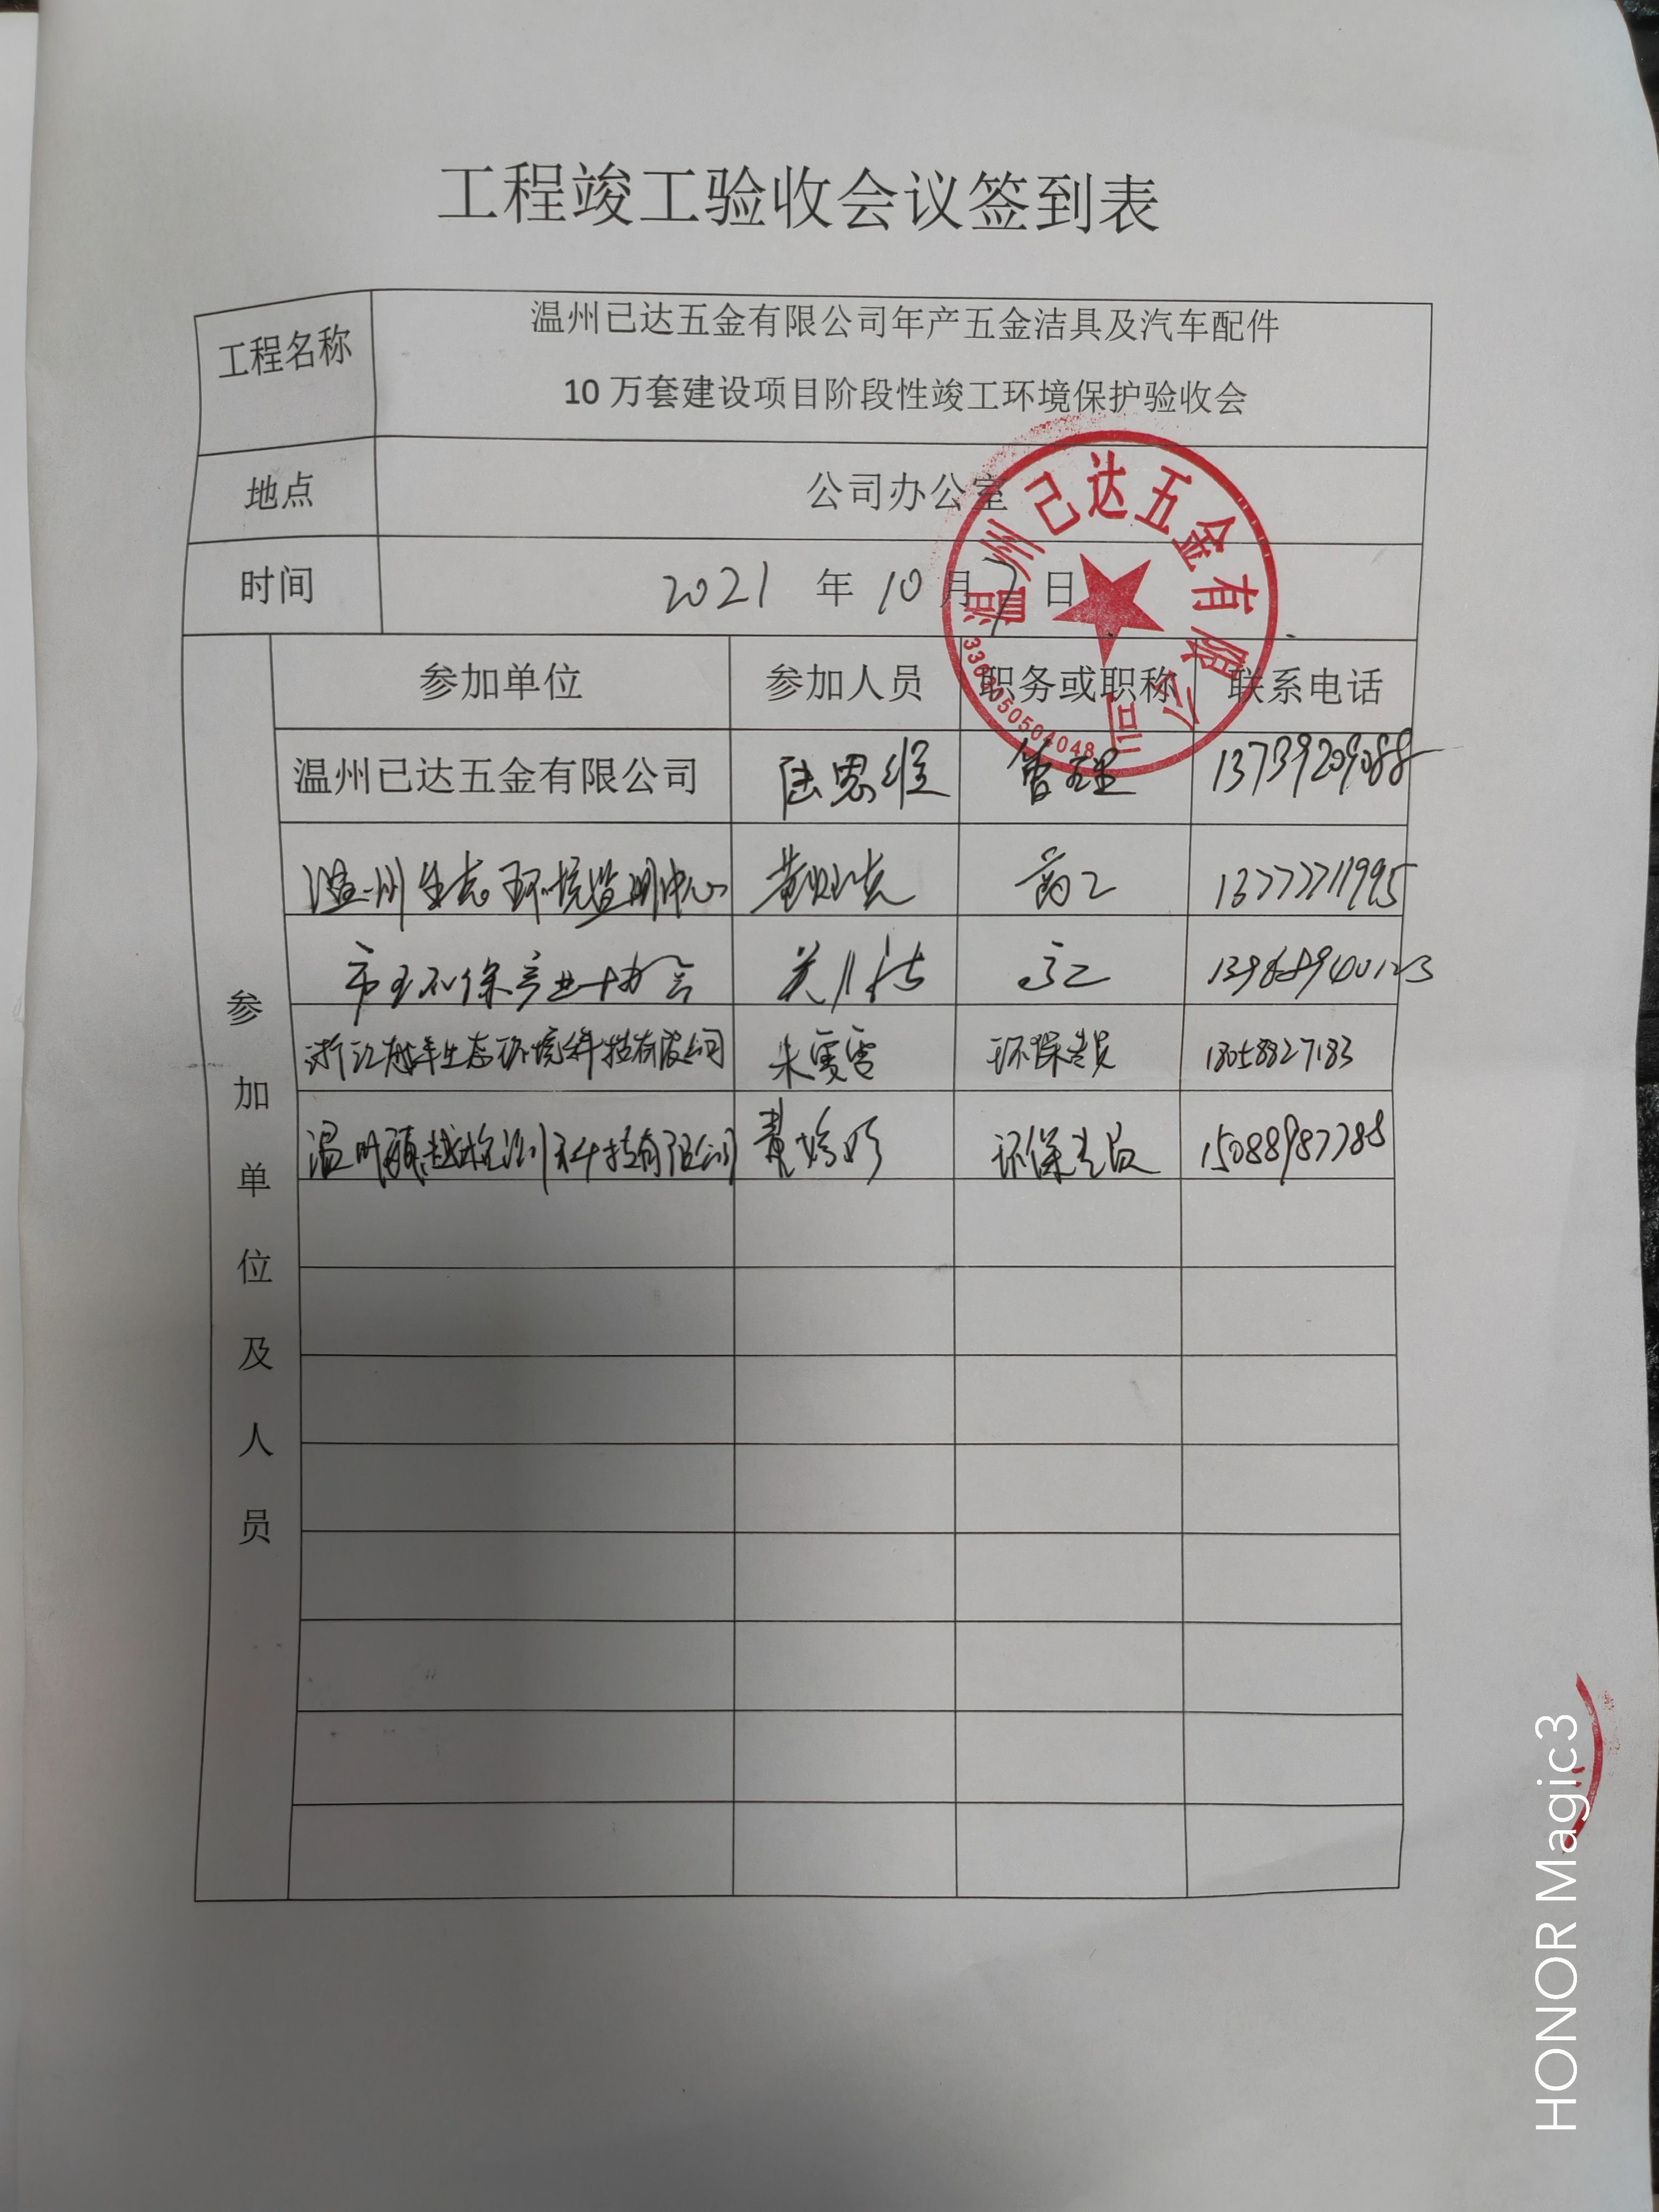 工程竣工验收会议签到表
工程名称
温州已达五金有限公司年产五金洁具及汽车配件
10万套建设项目阶段性竣工环境保护验收会
地点
公司办公室
时间
2021 年 10 月 7 日
参加单位及人员
参加单位 参加人员 职务或职称 联系电话
温州已达五金有限公司 陆思维 管理 13739209088
温州生态环境监测中心 高工 13777711995
市环保产业协会 高工
浙江 生态环境科技有限公司 朱雯雯 环保专员 18058827183
温州 越检测科技有限公司 环保专员 15088987788
温州已达五金有限公司
HONOR Magic3